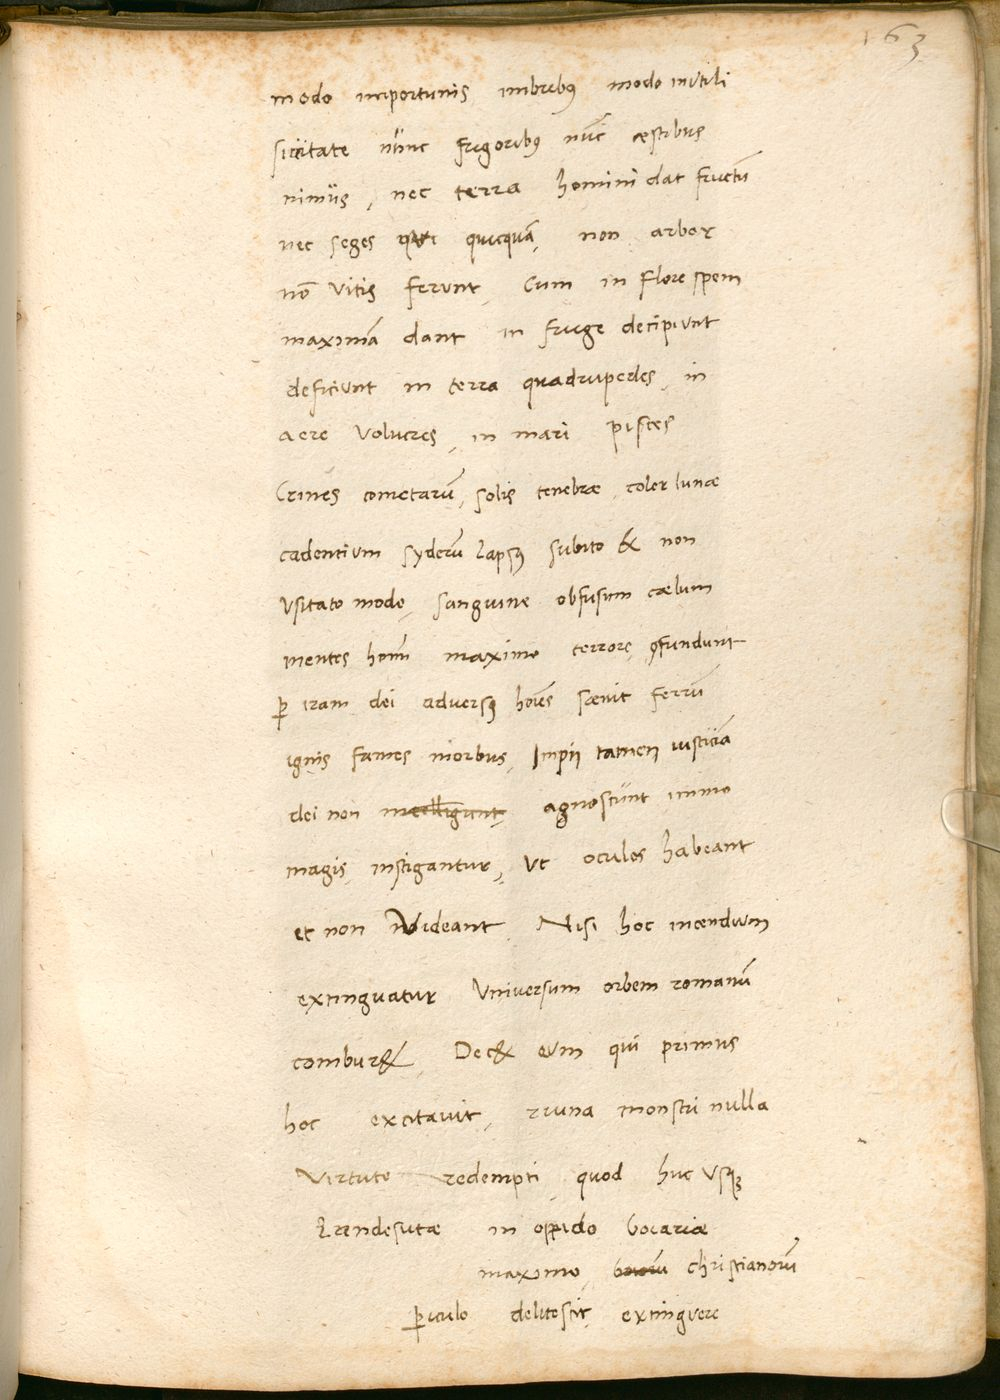 163
modo importunis imbribꝰ modo inutili
siccitate nūnc frigoribꝰ nūc æstibus
nimiis, nec terra homini dat fructū
nec seges quicquā, non arbor
nō vitis ferunt, Cum in flore spem
maximā dant in fruge decipiunt
deficiunt in terra quadrupedes, in
aere volucres, in mari pisces
Crines cometarū, solis tenebræ, color lunæ
cadentium syderū lapsꝰ subito & non
usitato modo, sanguine obfusum cælum
mentes homīm maximo terrore ꝯfundunt
ꝑ iram dei adversꝰ hoīes sævit ferrū
ignis fames morbus, Impii tamen iusticiā
dei non intelligunt, agnoscūnt immo
magis instigantur, ut oculos habeant
et non videant, Nisi hoc incendium
extinguatur Universum orbem romanū
combur&, Dec& eum qui primus
hoc excitavit, ruina monstri nulla
virtute redempti, quod huc usqꝫ
Landesutæ in oppido boiariæ
maximo, boiorū christianorū
ꝑiculo delitescit, extinguere